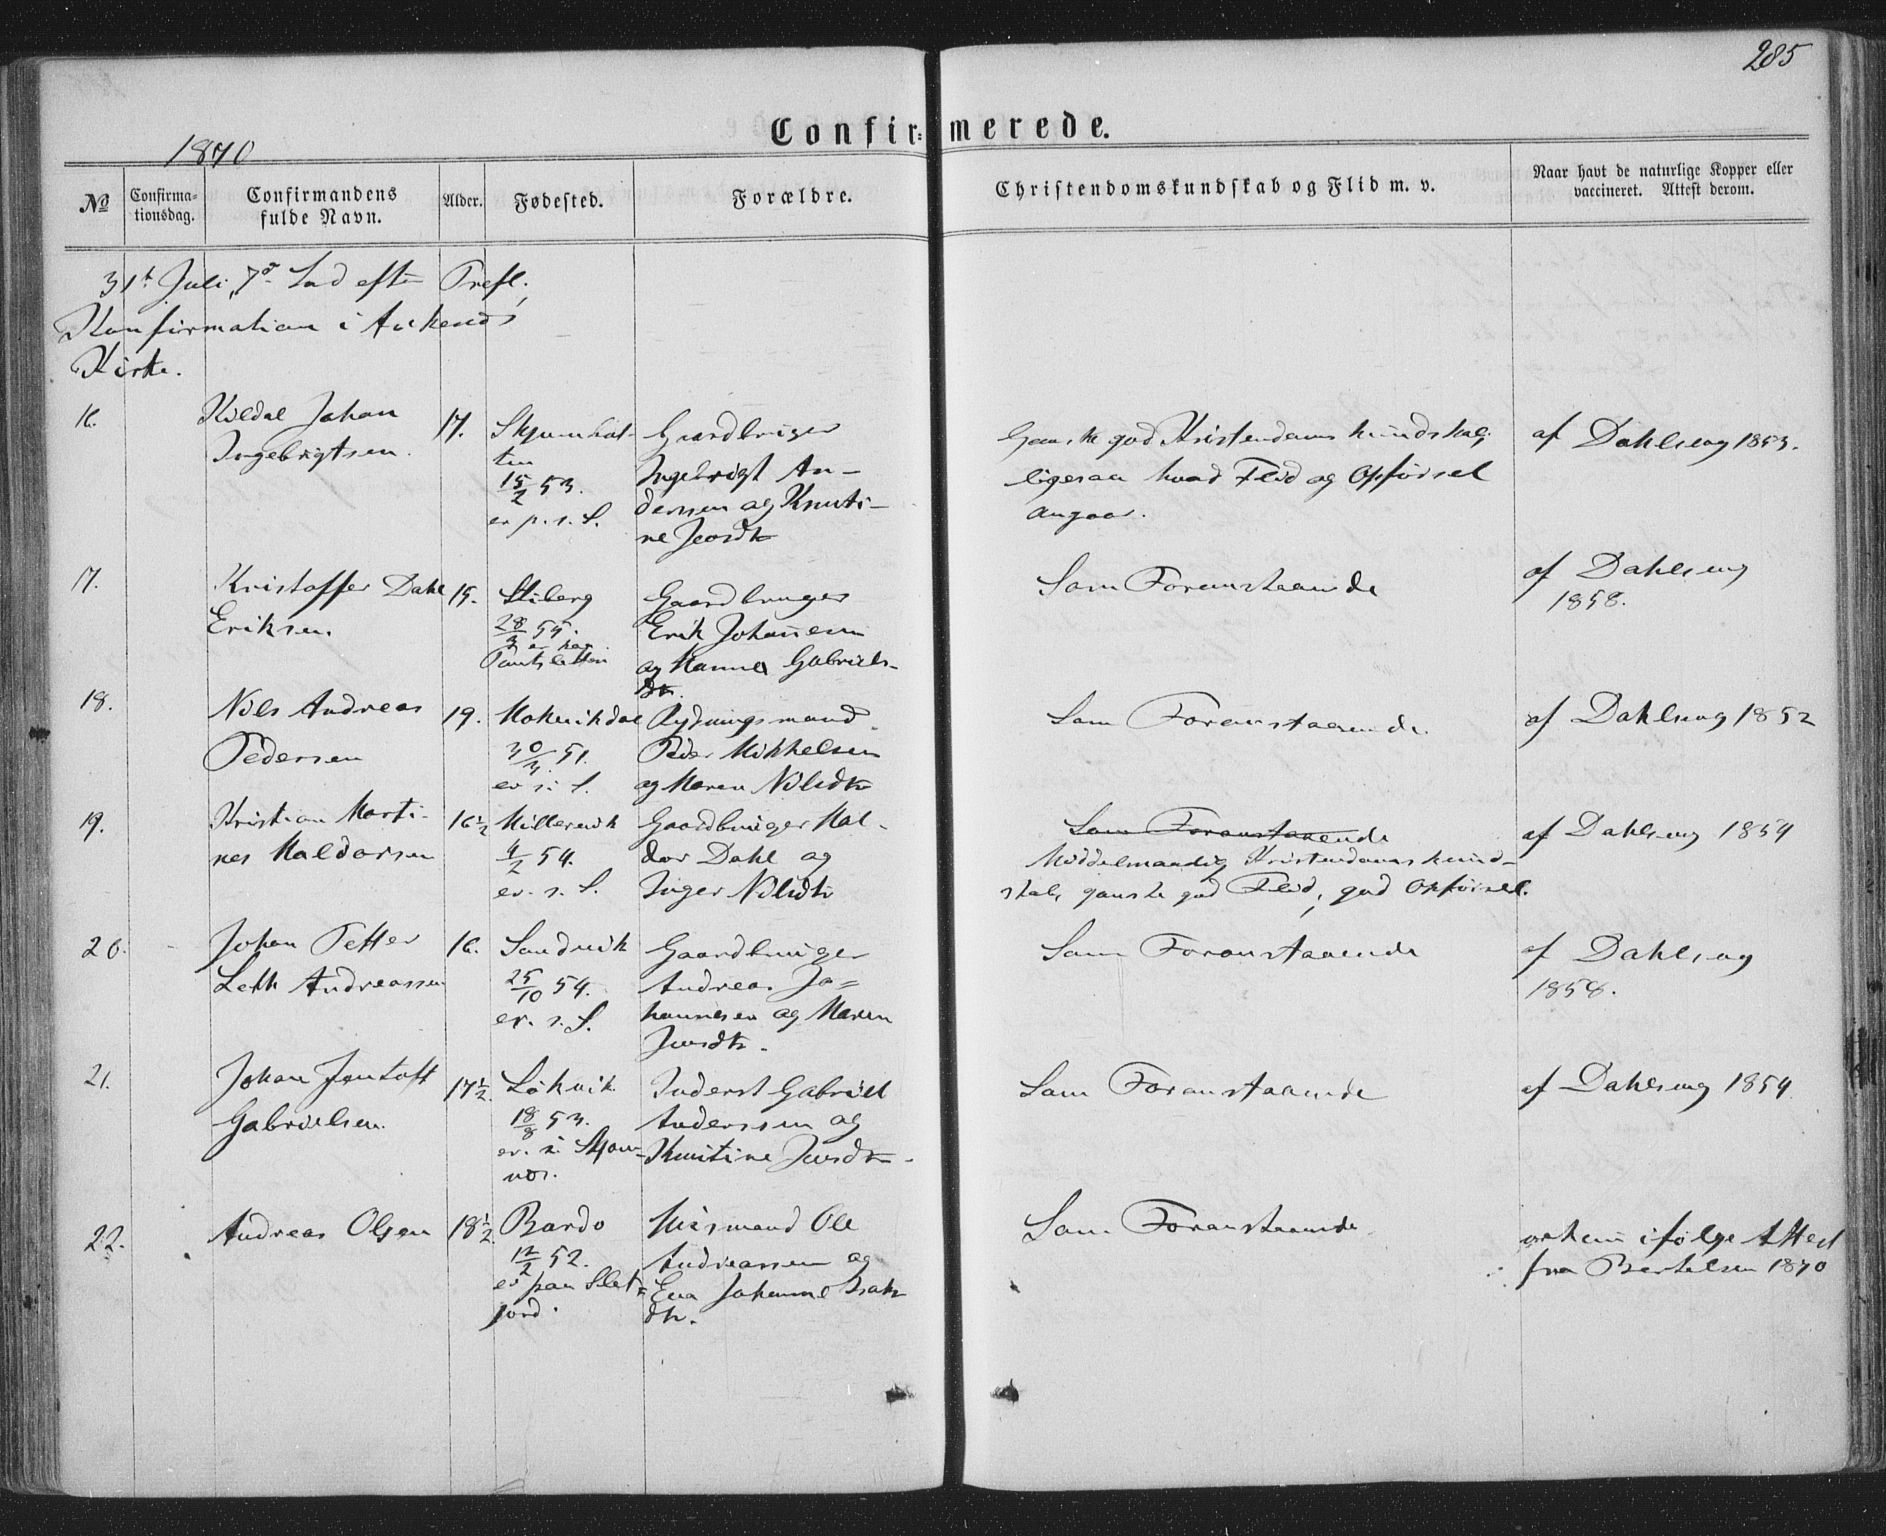 285
1870
Confir= merede.
No Confirma-tionsdag. Confirmandens fulde Navn. Alder. Fødested. Forældre. Christendomskundskab og Flid m. v. Naar havt de naturlige Kopper eller vaccineret. Attest derom.
31te Juli, 7de Snd efter Trefl.,
Konfirmation i Ankenes
Kirke.
16. Kildal Johan
Ingebrigtsen.
17.
15/2 53.
er p. s. S.
Gaardbruger
Ingebrigt An-
dersen og Knuti-
ne Jensdtr
Ganske god Kristendomskundskab,
ligesaa hvad Flid og Opførsel
angaar.
af Dahlseng 1853.
17. Kristoffer Dahl
Eriksen
15.
Stiberg
28/3 55.
Gaardbruger
Erik Johansen
og Hanna Gabriels-
dtr.
Som Foranstaaende
af Dahlseng
1858.
18. Nils Andreas
Pedersen
19.
30/3 51.
er i S.
Rydningsmand
Peder Mikkelsen
og Maren Nilsdtr
Som Foranstaaende
af Dahlseng 1852
19. Kristian Marti-
nes Haldorsen
16½
Hillervik
4/2 54.
er s. S.
Gaardbruger Hal-
dor Dahl og
Inger Nilsdtr
Som Foranstaaende
Middelmaadig Kristendomskund-
skab, ganske god Flid, god Opførsel.
af Dahlseng 1854
20. Johan Petter
Leth Andreassen
16.
Sandvik
25/10 54.
er. s. S.
Gaardbruger
Andreas Jo=
hannesen og Maren
Jensdtr.
Som Foranstaaende
af Dahlseng
1858.
21. Johan Jentoft
Gabrielsen.
17½.
Løkvik
18/8 53.
er. i Skjom-
nes.
Inderst Gabriel
Anderssen og
Knutine Jensdtr.
Som Foranstaaende
af Dahlseng 1854
22. Andreas Olsen
18½
Bardo
12/2 52.
er paa Slet=
jord.
Huusmand Ole
Andreassen og
Ena Johanne Isaks
dtr.
Som Foranstaaende
ifølge Attest
fra Bertelsen 1870